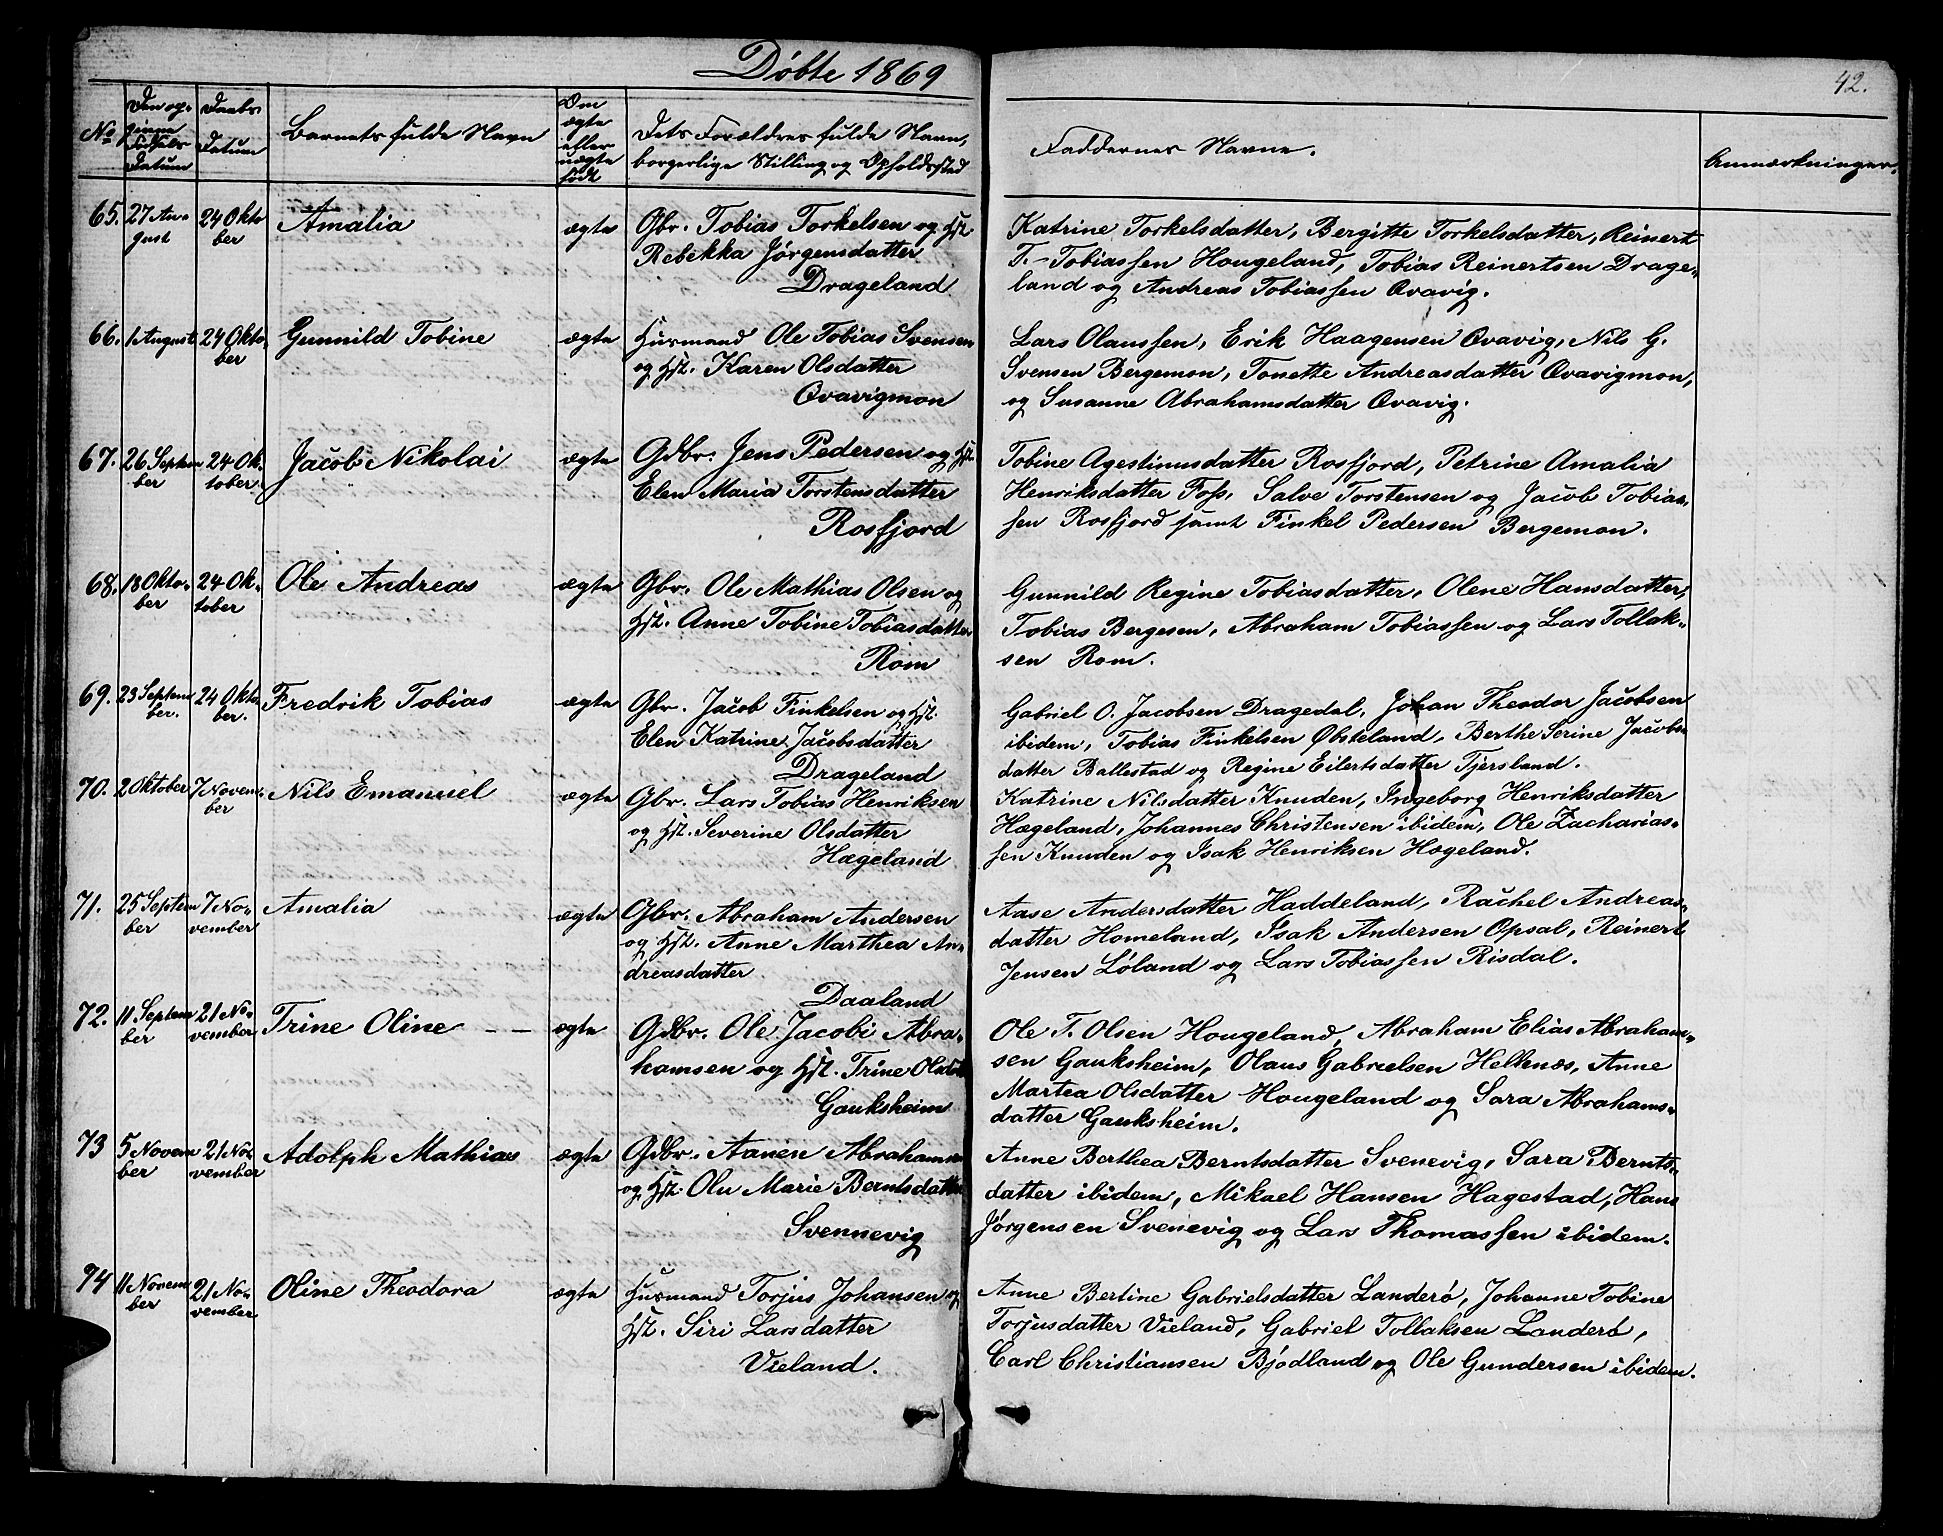 Döbte 1869
42.
No
Den op-
givne
Fødsels
Datum
Daabs
Datum
Barnets fulde Navn
Om
ægte
eller
uægte
født
Dets Forældres fulde Navn,
borgerlige Stilling og Opholdssted
Faddernes Navne.
Anmærkninger.
65. 27 Au-
gust
24 Okto
ber
Amalia
ægte
Gbr. Tobias Torkelsen og Hst.
Rebekka Jørgensdatter
Drageland
Katrine Torkelsdatter, Bergitte Torkelsdatter, Reinert
T. Tobiassen Hougeland, Tobias Reinertsen Drage-
land og Andreas Tobiassen Qvavig.
66. 1 August
24 Okto-
ber
Gunnild Tobine
ægte
Husmand Ole Tobias Svensen
og Hst. Karen Olsdatter
Qvavigmon
Lars Olaussen, Erik Haagensen Qvavig, Nils G.
Svensen Bergemon, Tonette Andreasdatter Qvavigmon,
og Susanne Abrahamsdatter Qvavig.
67. 26 Septem
ber
24 Ok-
tober
Jacob Nikolai
ægte
Gdbr. Jens Pedersen og Hst.
Elen Maria Torstensdatter
Rosfjord
Tobine Agestinusdatter Rosfjord, Petrine Amalia
Henriksdatter Foss, Salve Torstensen og Jacob Tobias-
sen Rosfjord samt Finkel Pedersen Bergemon.
68. 18 Okto-
ber
24 Ok-
tober
Ole Andreas
ægte
Gbr. Ole Mathias Olsen og
Hst. Anne Tobine Tobiasdatter
Rom
Gunnild Regine Tobiasdatter, Olene Hansdatter,
Tobias Bergesen, Abraham Tobiassen og Lars Tollak-
sen Rom.
69. 23 Septem
ber.
24 Okto
ber.
Fredrik Tobias
ægte
Gbr. Jacob Finkelsen og Hst.
Elen Katrine Jacobsdatter
Drageland
Gabriel O. Jacobsen Dragedal, Johan Theodor Jacobsen
ibidem, Tobias Finkelsen Øbsteland, Berthe Serine Jacobs-
datter Ballestad og Regine Eilertsdatter Tjersland.
70. 2 Oktober
7 Novem-
ber
Nils Emanuel
ægte
Gbr. Lars Tobias Henriksen
og Hst. Severine Olsdatter
Hægeland
Katrine Nilsdatter Knuden, Ingeborg Henriksdatter
Hægeland, Johannes Christensen ibidem, Ole Zacharias-
sen Knuden og Isak Henriksen Hægeland.
71. 25 Septem
ber
7 No-
vember
Amalia
ægte
Gbr. Abraham Andersen
og Hst. Anne Marthea An-
dreasdatter
Daaland
Aase Andersdatter Haddeland, Rachel Andreas-
datter Homeland, Isak Andersen Opsal, Reinert
Jensen Löland og Lars Tobiassen Risdal.
72. 11 Septem
ber
21 No-
vember
Trine Oline
ægte
Gdbr. Ole Jacobi Abra-
hamsen og Hst. Trine Olsdatt
Gauksheim
Ole T. Olsen Hougeland, Abraham Elias Abraham-
sen Gauksheim, Olaus Gabrielsen Hellenæs, Anne
Martea Olsdatter Hougeland og Sara Abrahams-
datter Gauksheim.
73 5 Novem
ber
21 No-
vember
Adolph Mathias
ægte
Gdbr. Aanen Abrahamsen
og Hst. Olu Marie Berntsdatter
Svennevig
Anne Berthea Berntsdatter Svenevig, Sara Bernts-
datter ibidem, Mikael Hansen Hagestad, Hans
Jörgensen Svenevig og Lars Thomassen ibidem.
74 11 Novem
ber
21 No-
vember
Oline Theodora
ægte
Husmand Torjus Johansen og
Hst. Siri Larsdatter
Vieland.
Anne Bertine Gabrielsdatter Landerö, Johanne Tobine
Torjusdatter Vieland, Gabriel Tollaksen Landerö,
Carl Christiansen Bjödland og Ole Gundersen ibidem.